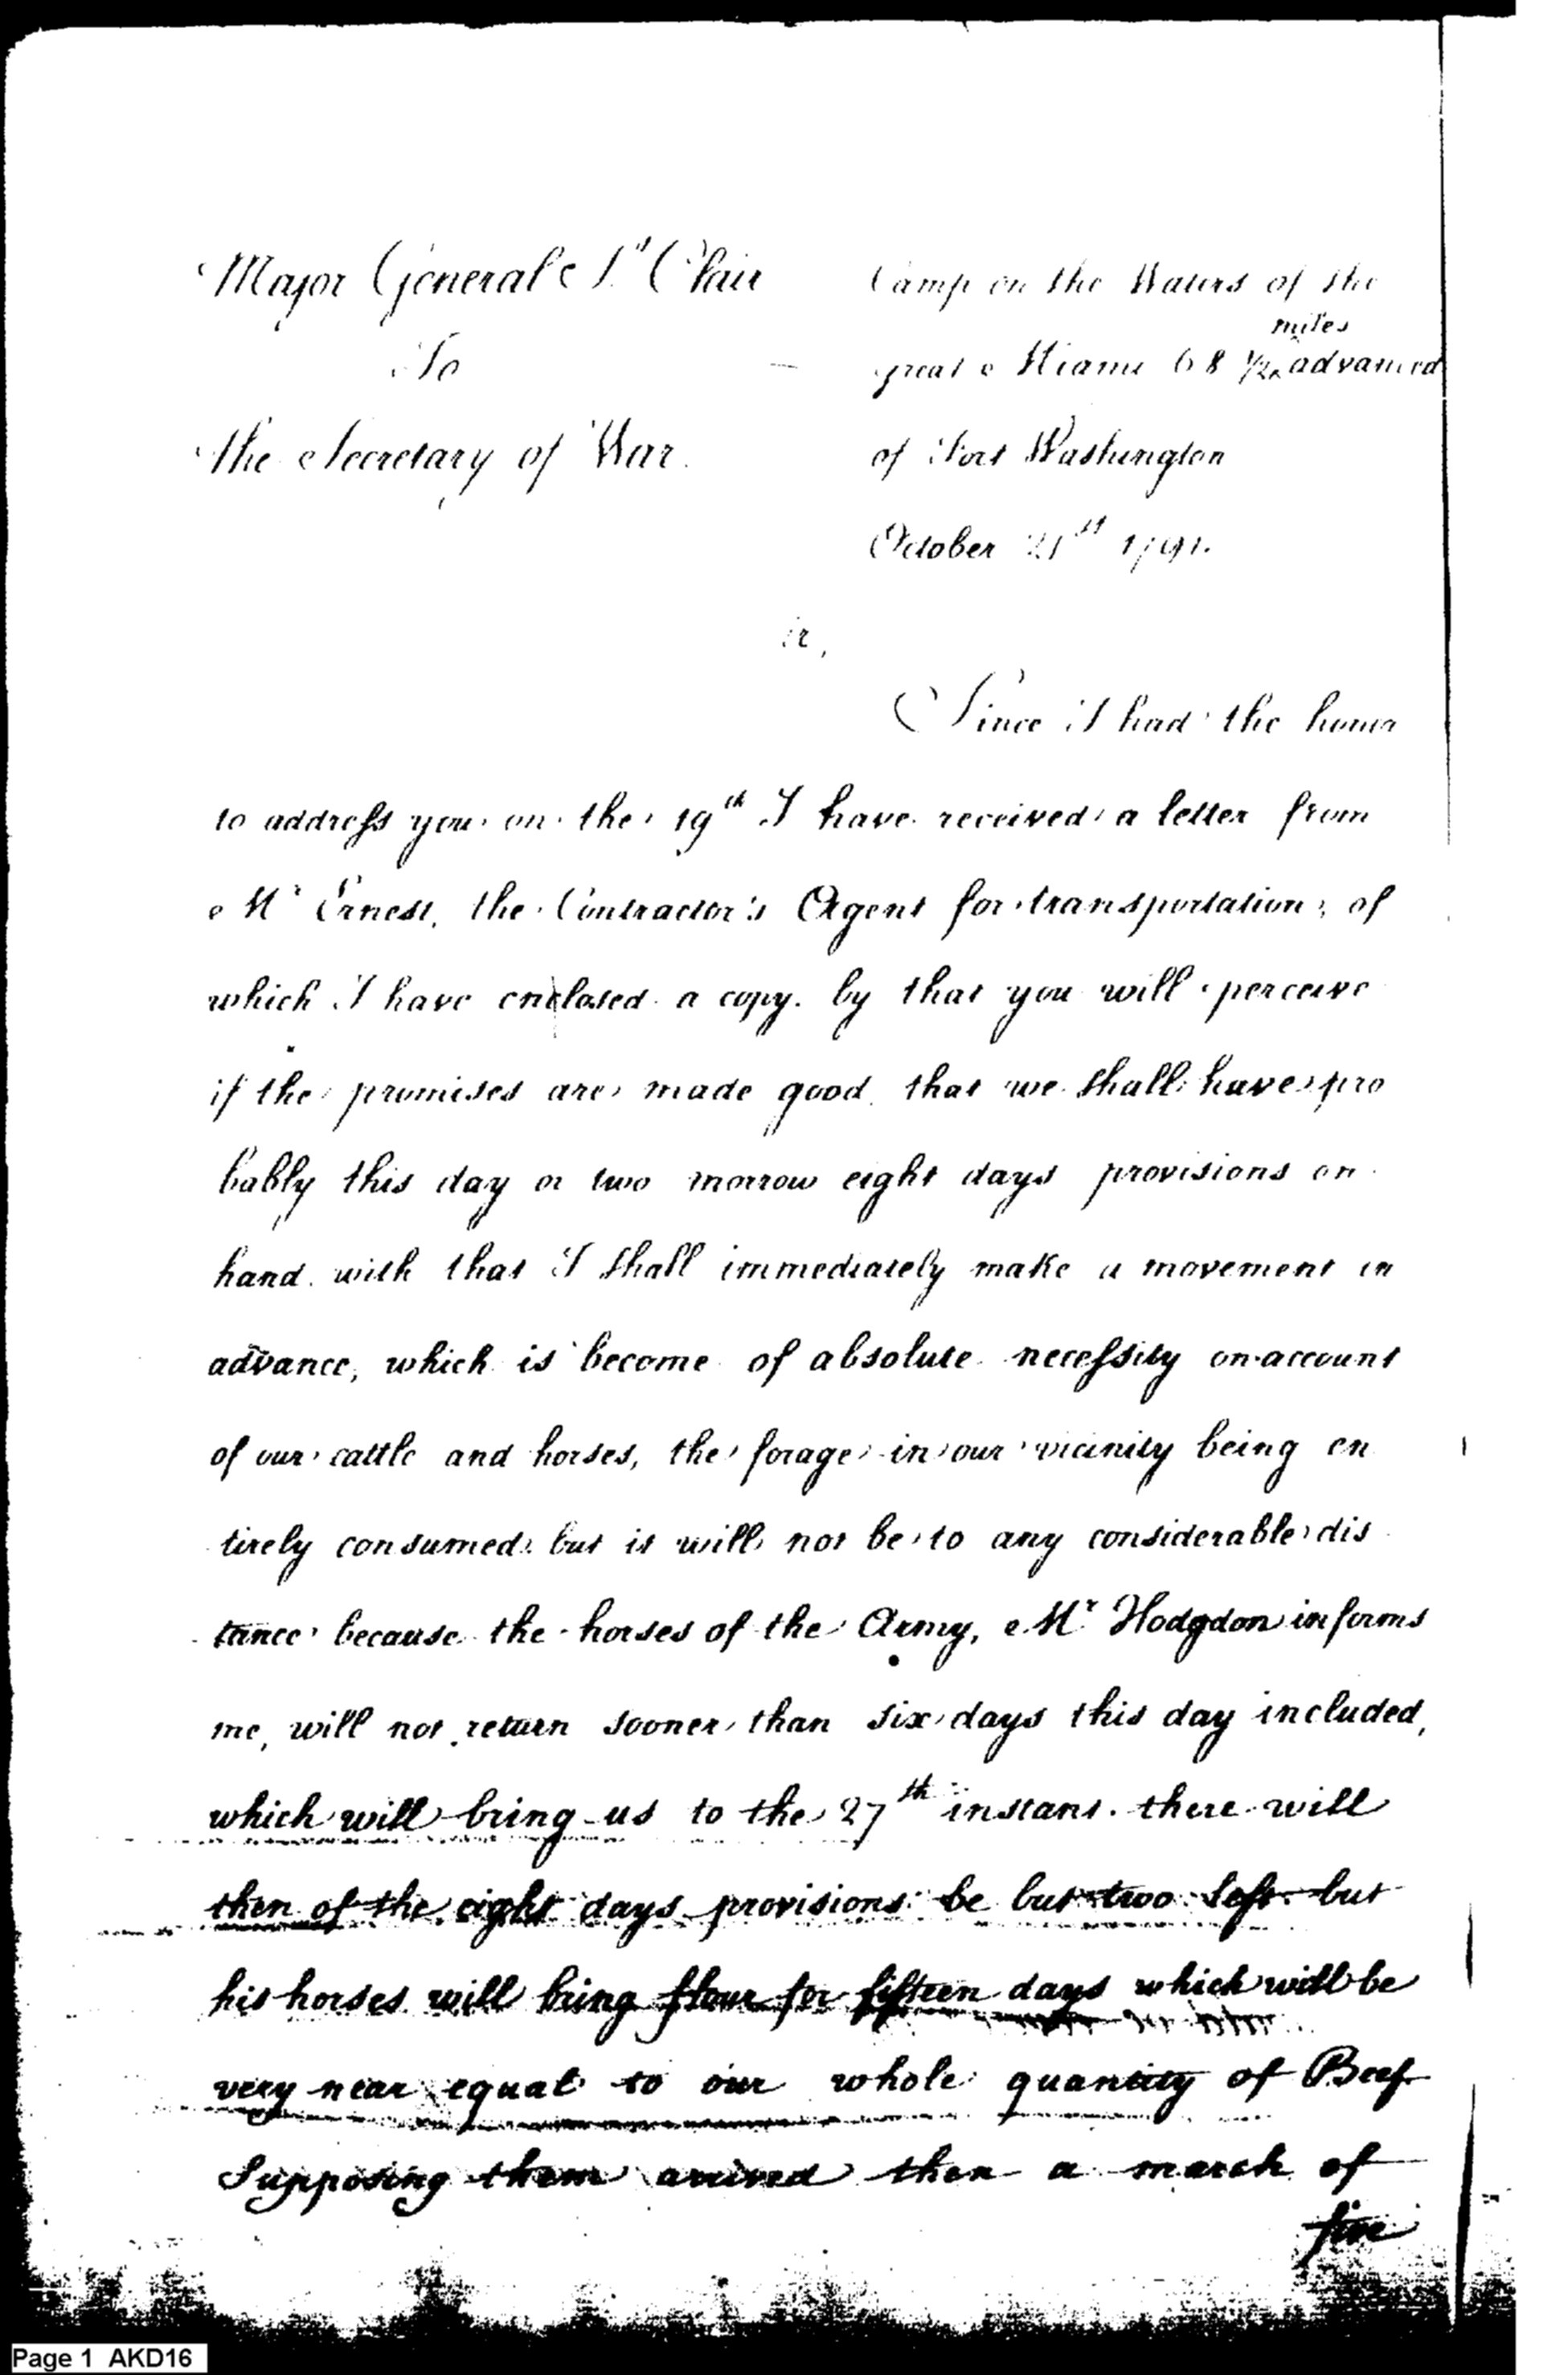 Major General St Clair
To
the Secretary of War.
Camp on the Waters of the
great Miami 68 1/2 miles advanced
of Fort Washington
October 21st 1791.
Sir,
Since I had the honor
to address you on the 19th I have received a letter from
Mr Ernest, the Contractor's Agent for transportation, of
which I have enclosed a copy. by that you will perceive
if the promises are made good, that we shall have pro
bably this day or two morrow eight days provisions on
hand. with that I shall immediately make a movement in
advance, which is become of absolute necessity on account
of our cattle and horses, the forage in our vicinity being en
tirely consumed: but it will not be to any considerable dis
tance because the horses of the Army, Mr Hodgdon informs
me, will not return sooner than six days this day included,
which will bring us to the 27th instant. there will
then of the eight days provisions be but two left but
his horses will bring flour for fifteen days which will be
very near equal to our whole quantity of Beef
Supposing them arrived then a march of
five
Page 1 AKD16